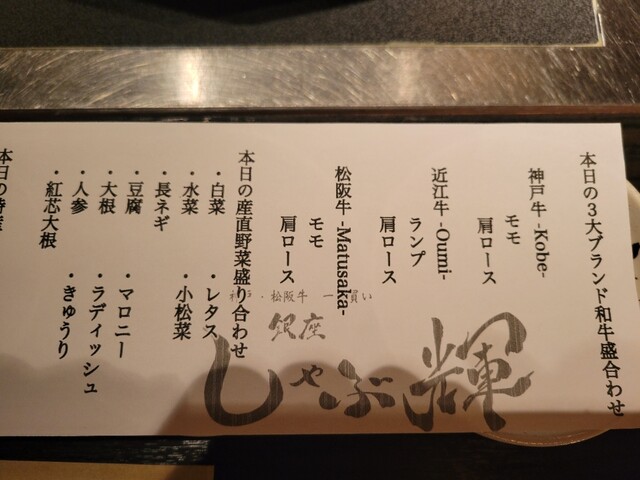 本日の3大ブランド和牛盛合わせ
神戸牛 -Kobe-
モモ
肩ロース
近江牛 -Oumi-
ランプ
肩ロース
松阪牛 -Matusaka-
モモ
肩ロース
本日の産直野菜盛り合わせ
・白菜 ・レタス
・水菜 ・小松菜
・長ネギ
・豆腐 ・マロニー
・大根 ・ラディッシュ
・人参 ・きゅうり
・紅芯大根
本日の特産
・松阪牛 一 買い
銀座
しゃぶ輝